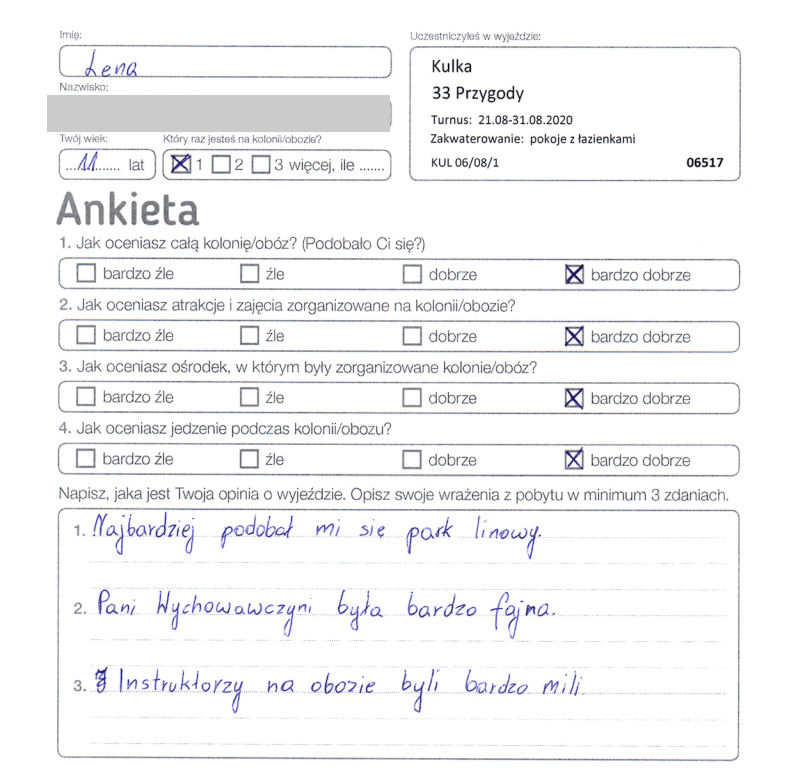 Imię:
Lena
Nazwisko:
Twój wiek:
11 lat
Który raz jesteś na kolonii/obozie?
1 2 3 więcej, ile .......
Uczestniczyłeś w wyjeździe:
Kulka
33 Przygody
Turnus: 21.08-31.08.2020
Zakwaterowanie: pokoje z łazienkami
KUL 06/08/1 06517
Ankieta
1. Jak oceniasz całą kolonię/obóz? (Podobało Ci się?)
bardzo źle źle dobrze bardzo dobrze
2. Jak oceniasz atrakcje i zajęcia zorganizowane na kolonii/obozie?
bardzo źle źle dobrze bardzo dobrze
3. Jak oceniasz ośrodek, w którym były zorganizowane kolonie/obóz?
bardzo źle źle dobrze bardzo dobrze
4. Jak oceniasz jedzenie podczas kolonii/obozu?
bardzo źle źle dobrze bardzo dobrze
Napisz, jaka jest Twoja opinia o wyjeździe. Opisz swoje wrażenia z pobytu w minimum 3 zdaniach.
1. Najbardziej podobał mi się park linowy.
2. Pani Wychowawczyni była bardzo fajna.
3. Instruktorzy na obozie byli bardzo mili